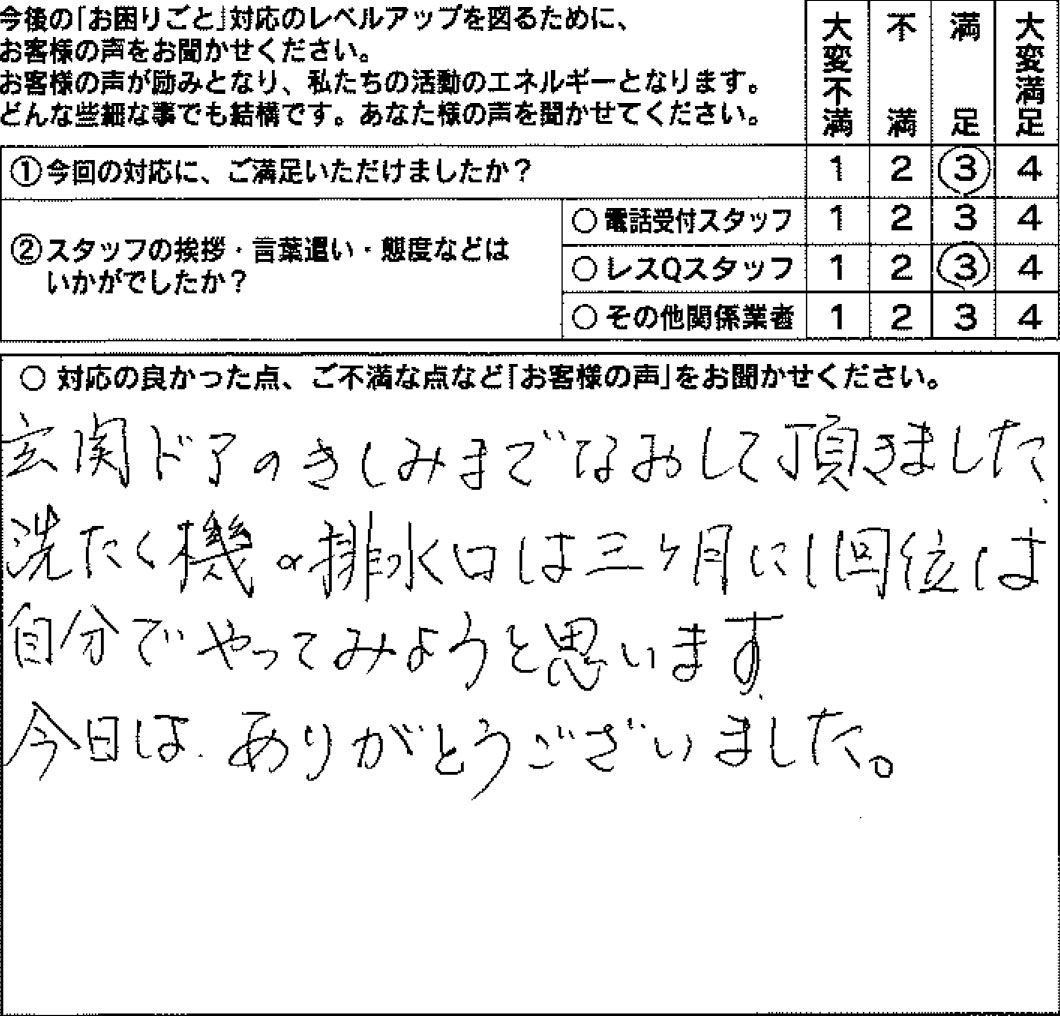 今後の「お困りごと」対応のレベルアップを図るために、
お客様の声をお聞かせください。
お客様の声が励みとなり、私たちの活動のエネルギーとなります。
どんな些細な事でも結構です。あなた様の声を聞かせてください。
大変不満 不満 満足 大変満足
①今回の対応に、ご満足いただけましたか？ 1 2 3 4
②スタッフの挨拶・言葉遣い・態度などは
いかがでしたか？
○電話受付スタッフ 1 2 3 4
○レスQスタッフ 1 2 3 4
○その他関係業者 1 2 3 4
○ 対応の良かった点、ご不満な点など「お客様の声」をお聞かせください。
玄関ドアのきしみまでなおして頂きました、
洗たく機の排水口は三ヶ月に1回位は
自分でやってみようと思います、
今日は、ありがとうございました。